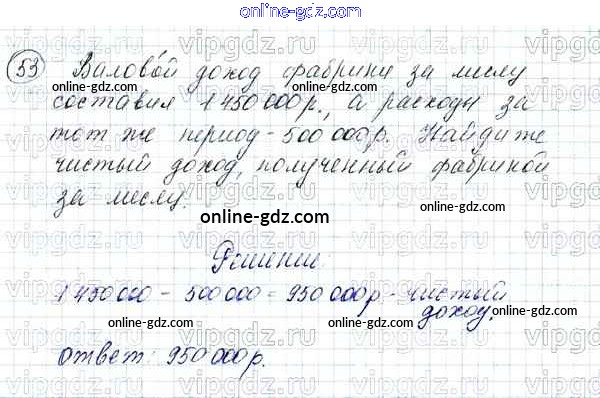 online-gdz.com
53 Валовой доход фабрики за месяц
составил 1 450 000 р., а расходы за
тот же период - 500 000 р. Найдите
чистый доход, полученный фабрикой
за месяц.
online-gdz.com
Решение:
1 450 000 - 500 000 = 950 000 р - чистый
доход.
online-gdz.com online-gdz.com online-gdz.com
ответ: 950 000 р.
online-gdz.com